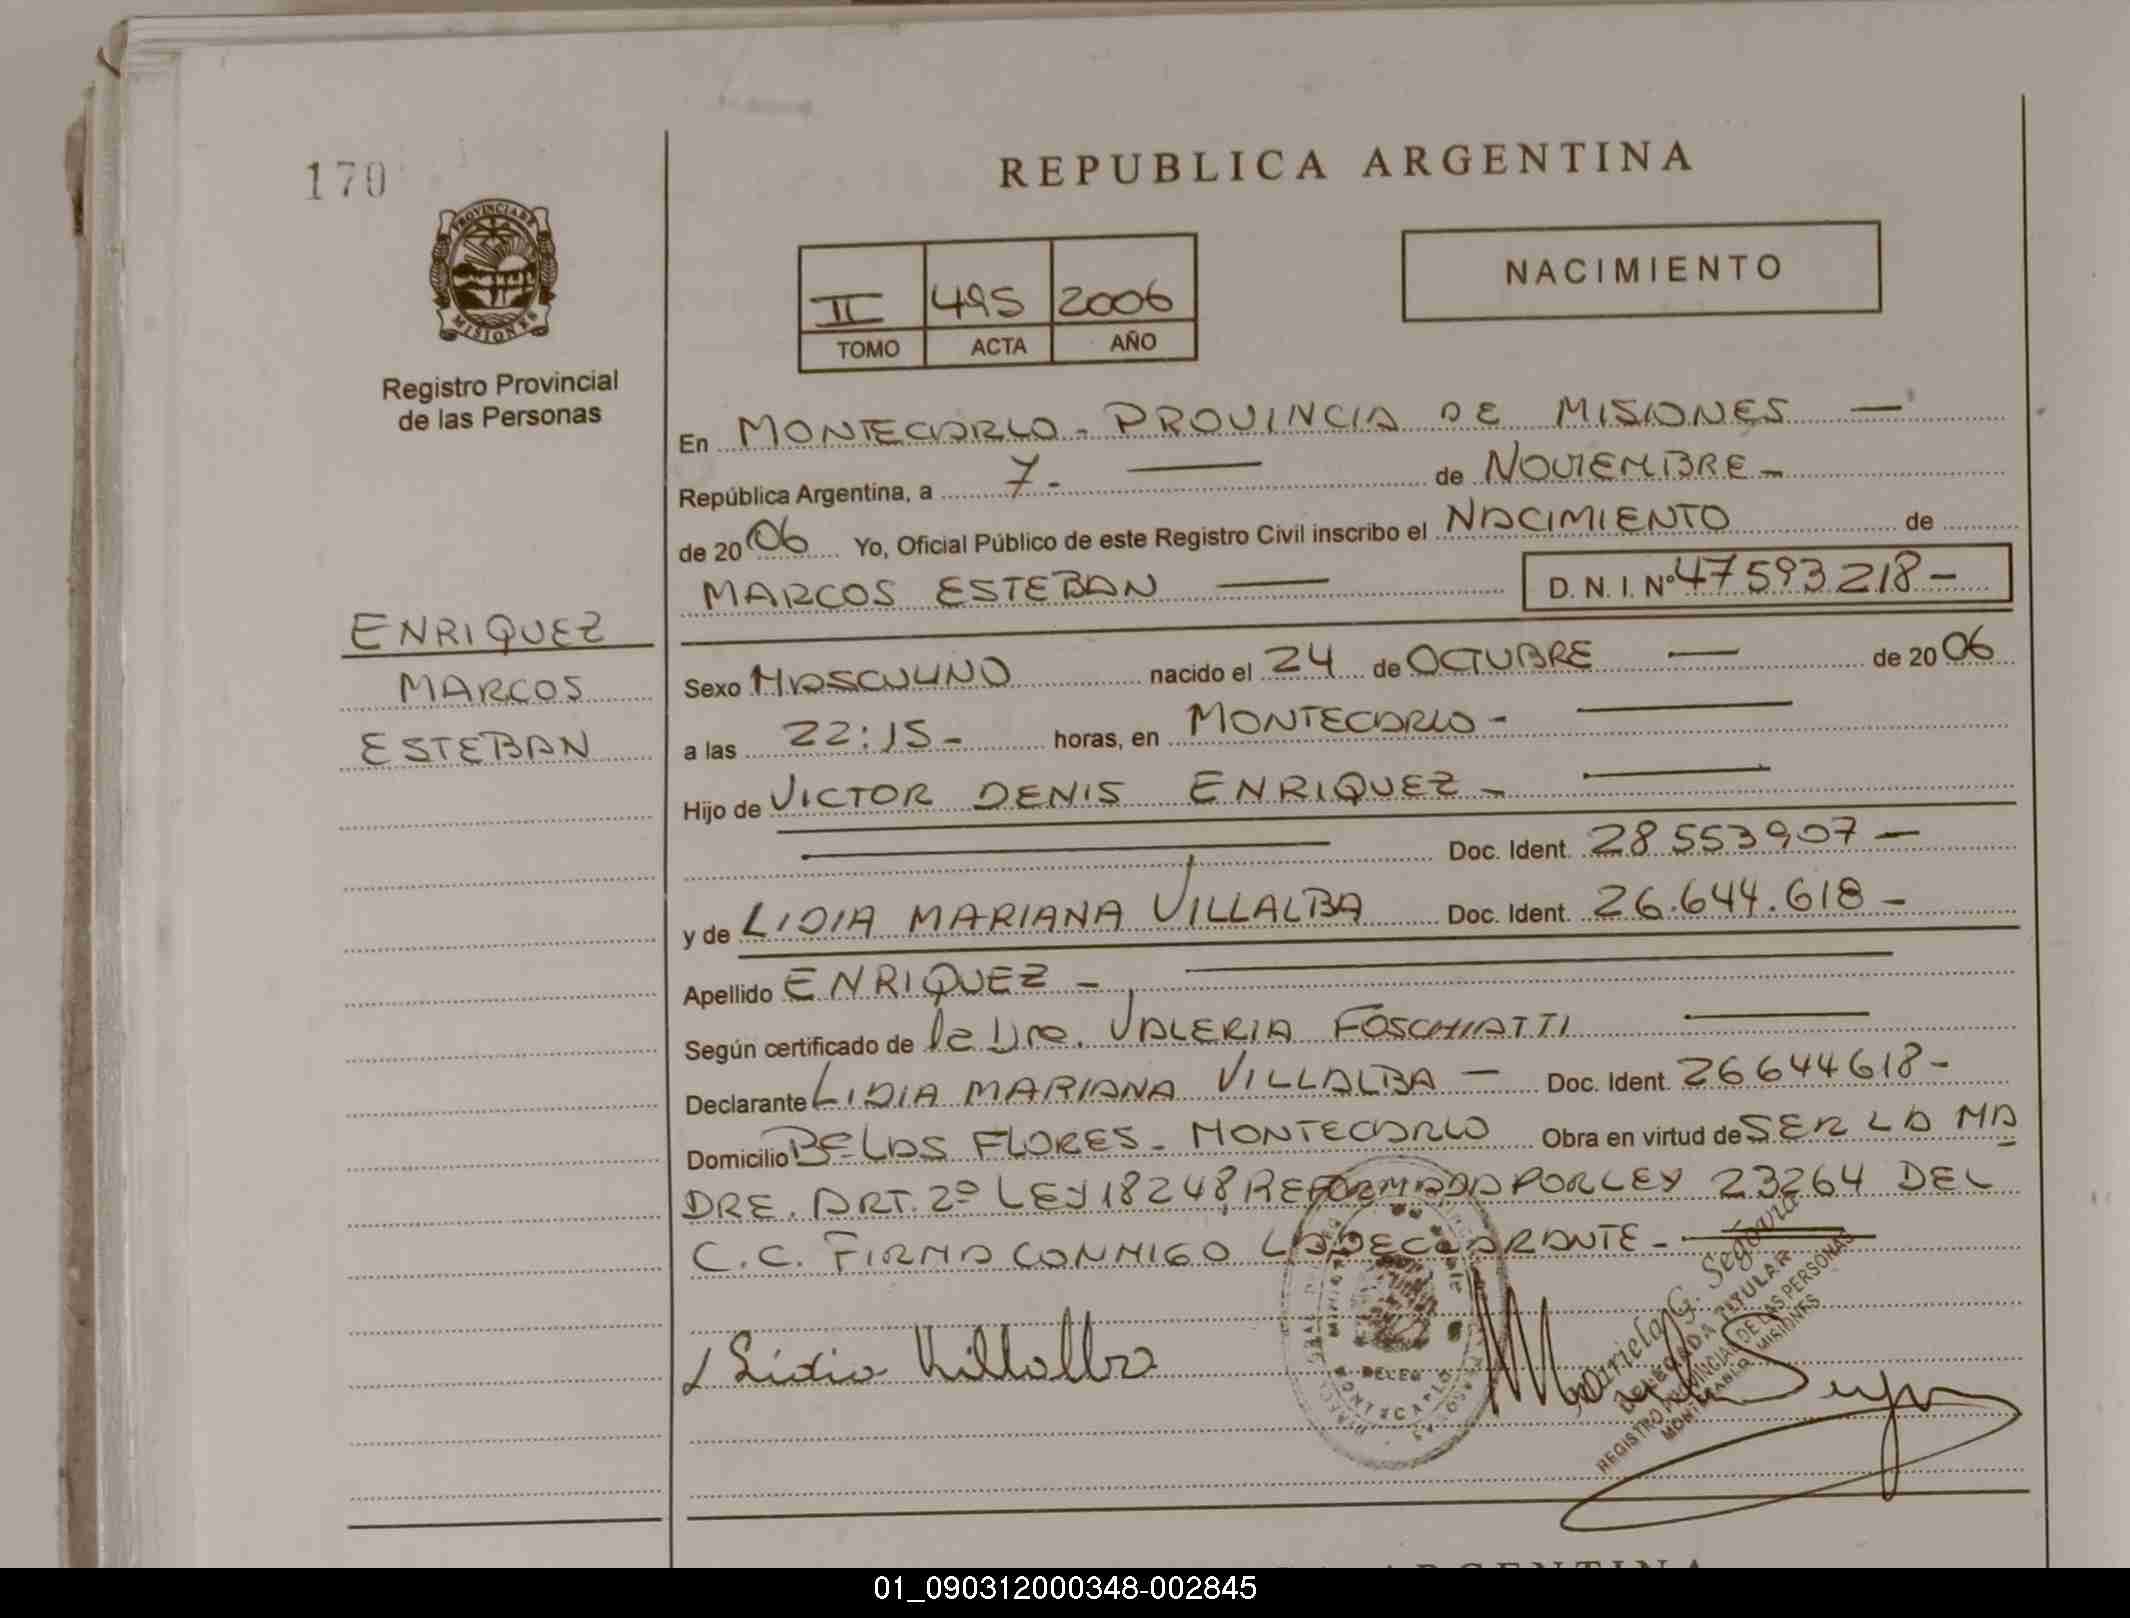 170
PROVINCIA DE
MISIONES
Registro Provincial
de las Personas
ENRIQUEZ
MARCOS
ESTEBAN
REPUBLICA ARGENTINA
NACIMIENTO
II 495 2006
TOMO ACTA AÑO
En MONTECARLO - PROVINCIA DE MISIONES —
República Argentina, a 7. — de NOVIEMBRE -
de 2006 Yo, Oficial Público de este Registro Civil inscribo el NACIMIENTO de
MARCOS ESTEBAN — D. N. I. Nº 47593218 -
Sexo MASCULINO nacido el 24 de OCTUBRE — de 2006
a las 22:15 - horas, en MONTECARLO - —
Hijo de VICTOR DENIS ENRIQUEZ - —
— Doc. Ident. 28553907 —
y de LIDIA MARIANA VILLALBA Doc. Ident. 26.644.618 -
Apellido ENRIQUEZ - —
Según certificado de la Dra. VALERIA FOSCHIATTI —
Declarante LIDIA MARIANA VILLALBA — Doc. Ident. 26644618 -
Domicilio Bº LAS FLORES - MONTECARLO Obra en virtud de SER LA MA
DRE. ART. 2º LEY 18248, REFORMADA POR LEY 23264 DEL
C.C. FIRMA CONMIGO LA DECLARANTE - —
Lidia Villalba
DELEG
MONTECARLO
Mariela G. Segovia
DELEGADA TITULAR
REGISTRO PROVINCIAL DE LAS PERSONAS
MONTECARLO - MISIONES
01_090312000348-002845